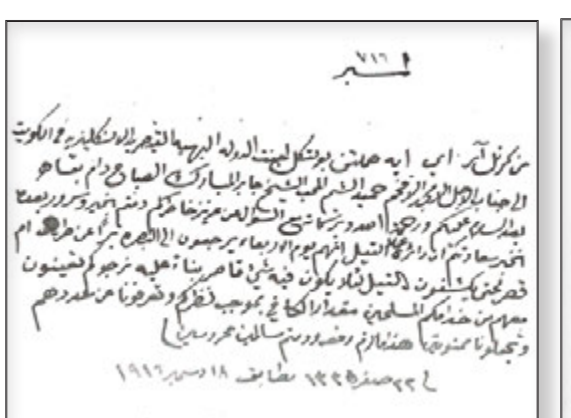 نمبر ٧١٦
من كرنل آر اي ايه هملتن بولتكل اجنت الدوله البهيه القيصريه الانكليزيه في الكويت
الى جناب الاجل الامجد الافخم حميد الشيم المحب الشيخ جابر المبارك الصباح دام بقاه
بعد السلام عليكم ورحمة الله وبركاته مع السؤال عن عزيز خاطركم دمتم بخير وسرور بعده
نخبر سعادتكم ان التيل انهم يوم الاربعاء يرجعون الى البصره عن طريق ام
قصر يكشفون التيل يكون فيه شي قاصر بناءً عليه نرجوكم تعينون
معهم من خدامكم المسلحين مقدار الكافي بموجب نظركم وتعرفونا عن عددهم
وتجعلونا ممنونين هذا ما لزم ودمتم سالمين محروسين
٢٢ صفر ١٣٣٥ مطابق ١٨ دسمبر ١٩١٦